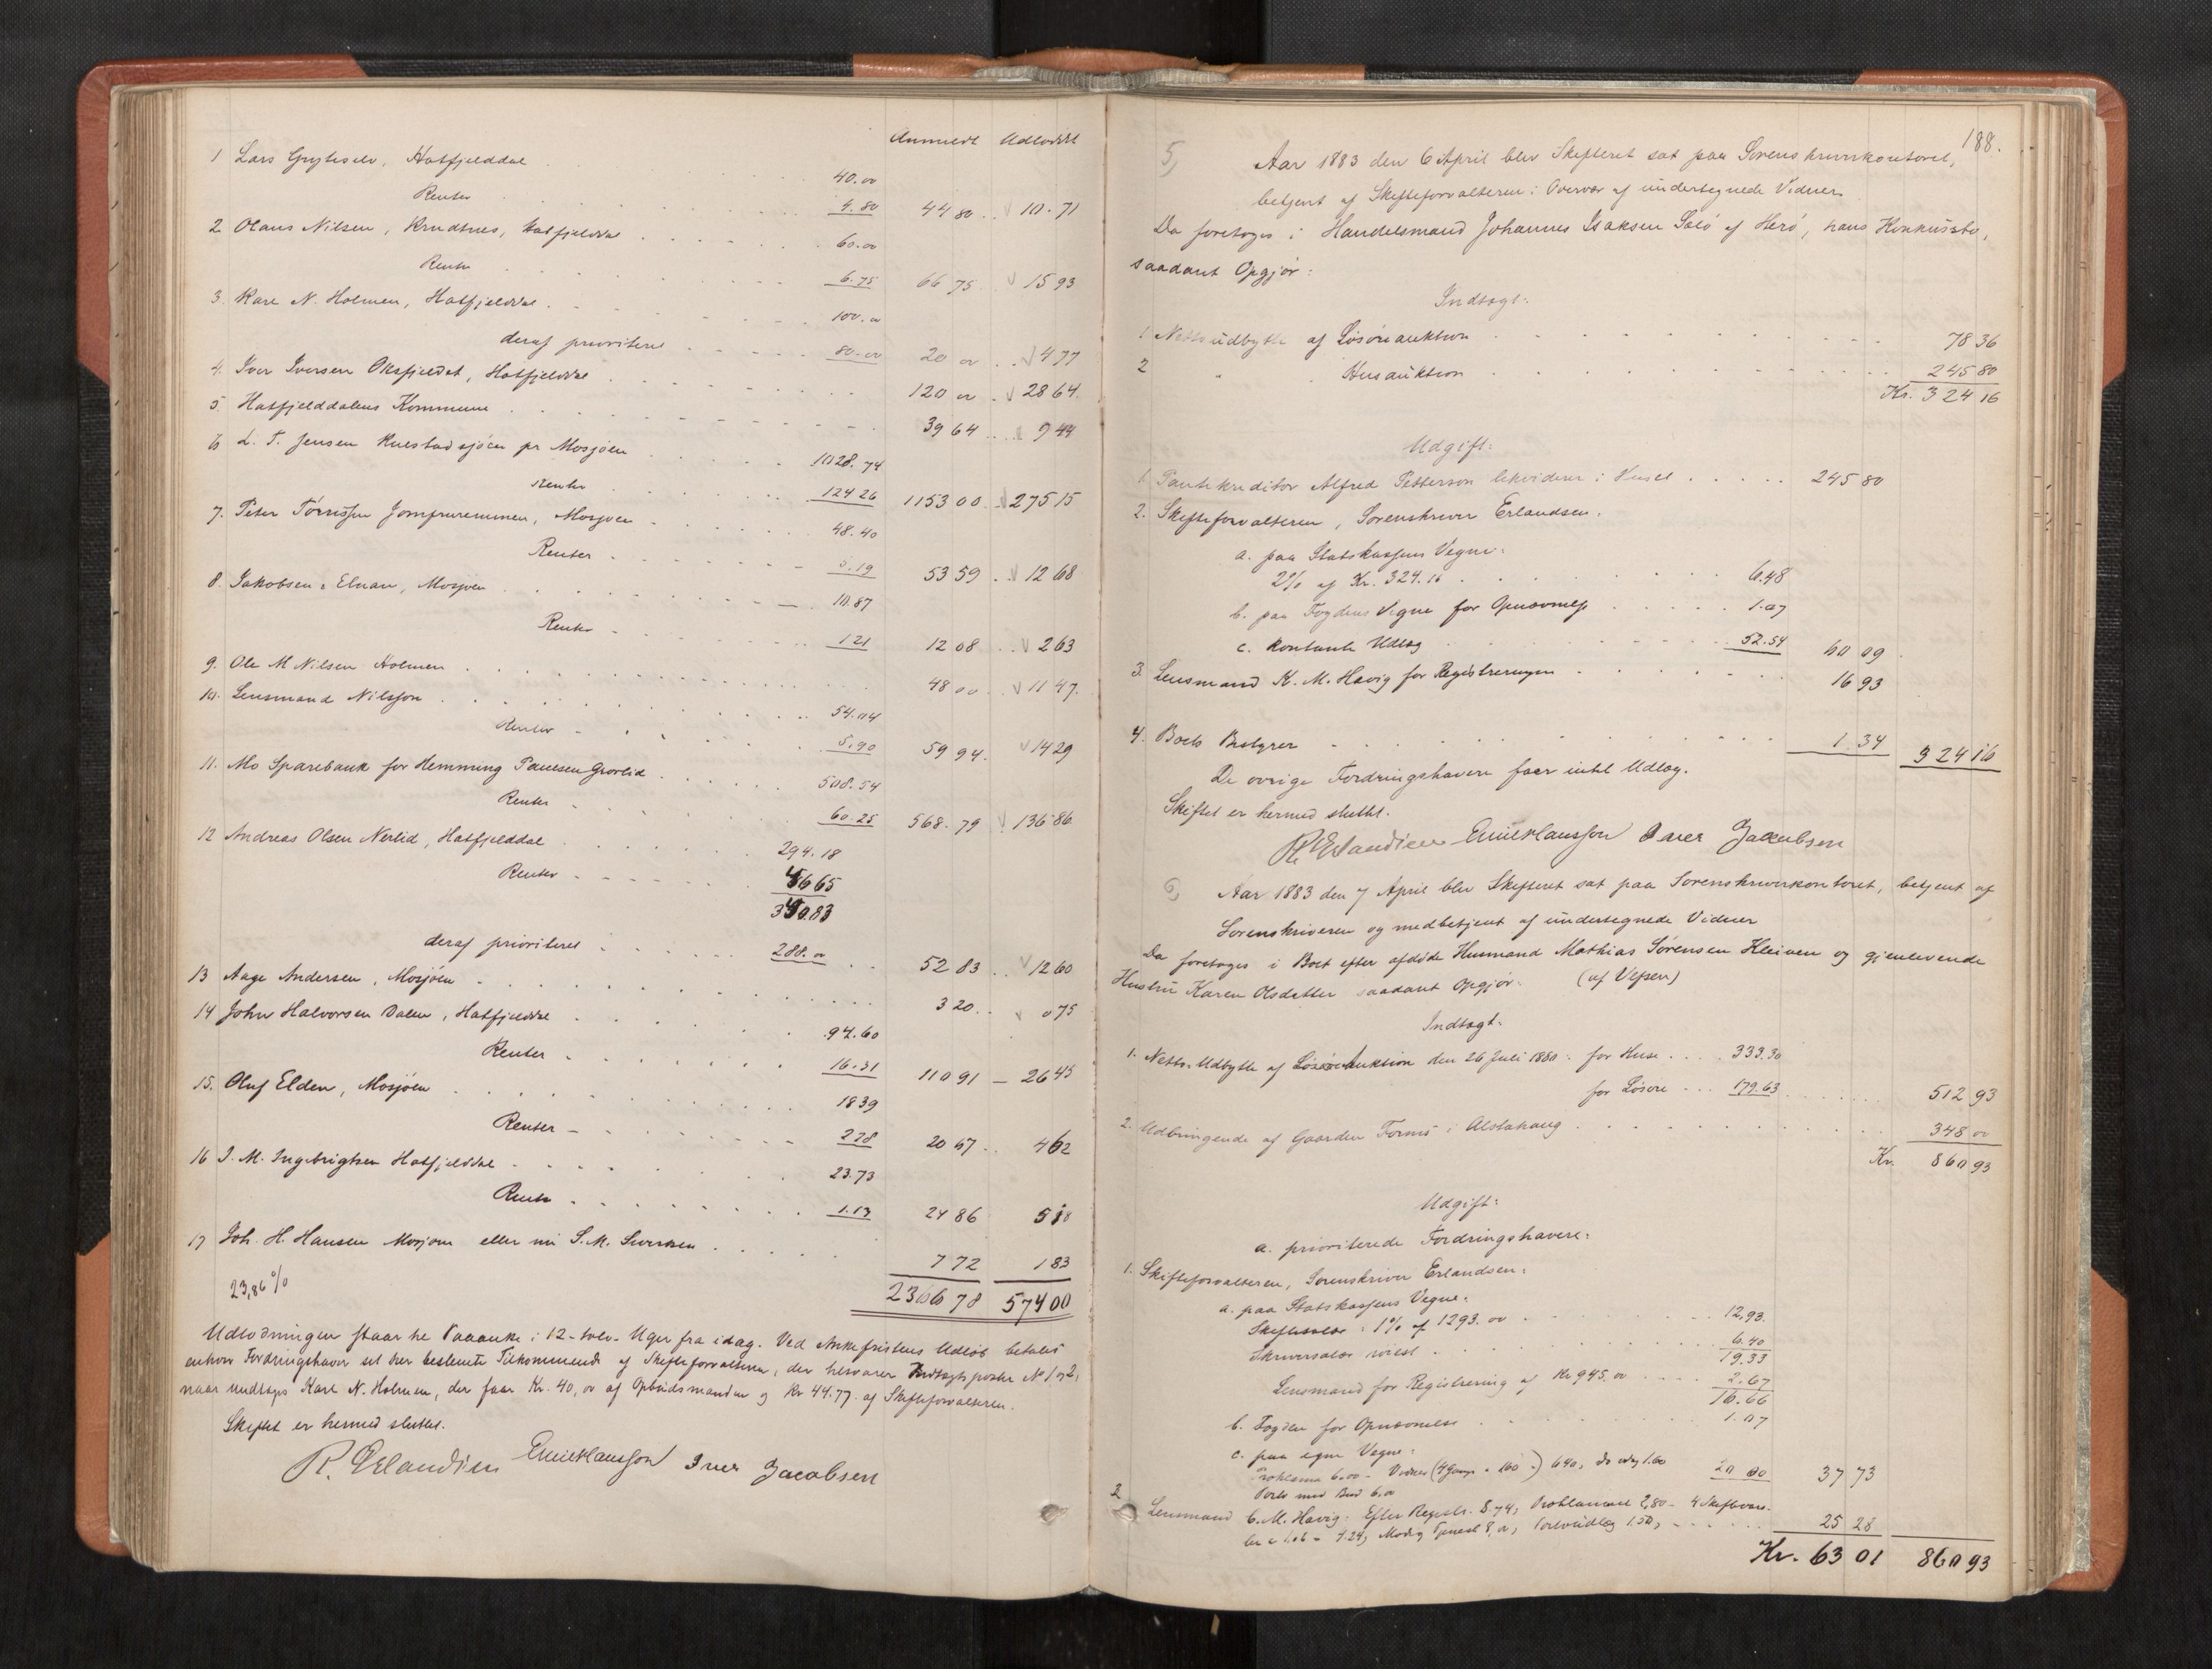 Anmeldt Udloddet
1 Lars Gryteselv, Hatfjelddal . . . 40.00
Renter . . . 4.80 44 80 . . 10.71
2 Olaus Nilsen, Krudtnes, Hatfjelddal . . . 60.00
Renter . . . 6.75 66 75 . . 15 93
3. Karl N. Holmen, Hatfjelddal . . . 100.00
deraf prioriteret . . . 80.00 20 00 . . 4 77
4. Iver Iversen Oksfjeldet, Hatfjelddal . . . 120 00 . 28 64.
5. Hatfjelddalens Kommune . . . 39 64 . . . 9 44
6 L. T. Jensen Kulstadsjøen pr Mosjøen . . . 1028.74
Renter . . . 124 26 1153 00 . 275 15
7. Peter Tørrissen Jomfruremmen, Mosjøen . . . 48.40
Renter . . . 5.19 53 59 . . 12 68
8. Jakobsen & Elnan, Mosjøen . . . 10.87
Renter . . . 1 21 12 08 . . 2 63
9. Ole M Nilsen Holmen . . . 48 00 . 11 47.
10. Lensmand Nilsson . . . 54.04
Renter . . . 5.90 59 94. 14 29
11. Mo Sparebank for Hemming Paulsen Grovlid . . . 508.54
Renter . . . 60.25 568.79 136 86
12 Andreas Olsen Nerlid, Hatfjelddal . . . 294.18
Renter . . . 46 65
340.83
deraf prioriteret . . . 288.00 52 83 . . 12 60
13 Aage Andersen, Mosjøen . . . 3 20 . . 0 75
14 John Halvorsen Dalen, Hatfjelddal . . . 94.60
Renter . . . 16.31 110 91 — 26 45
15. Oluf Elden, Mosjøen . . . 18 39
Renter . . . 2 28 20 67 . . 4 62
16 I. M. Ingebrigtsen Hatfjelddal . . . 23.73
Renter . . . 1.13 24 86 5 18
17 Joh. H. Hansen Mosjøen eller nu S. M. Sivertsen . . . 7 72 1 83
23,86 % 2306 78 574 00
Udlodningen staar til Paaanke i 12 - tolv - Uger fra idag. Ved Ankefristens Udløb betales
enhver Fordringshaver det ham bestemte Tilkommende af Skifteforvalteren, der besvarer Indtægtsposter No 1 og 2,
naar undtages Karl N. Holmen, der faar Kr. 40,00 af Opbudsmanden og Kr 44.77 af Skifteforvalteren.
Skiftet er hermed sluttet.
R. Erlandsen Emil Klausson Iver Jacobsen
188.
5) Aar 1883 den 6 April blev Skifteret sat paa Sorenskriverkontoret,
betjent af Skifteforvalteren i Overvær af undertegnede Vidner
Da foretoges i Handelsmand Johannes Isaksen Salø af Herø, hans Konkursbo,
saadant Opgjør:
Indtægt:
1 Netto udbytte af Løsøreauktion . . . 78 36
2 " . Husauktion . . . 245 80
Kr. 324 16
Udgift:
1. Pantekreditor Alfred Petterson likviderer i Huset . . . 245 80
2. Skifteforvalteren, Sorenskriver Erlandsen.
a. paa Statskassens Vegne:
2% af Kr. 324.16 . . . 6.48
b. paa Fogdens Vegne for Opnævnelse . . . 1.07
c. kontante Udlæg . . . 52.54 60 09
3. Lensmand K. M. Havig for Registreringen . . . 16 93
4. Boets Bestyrer . . . 1.34 324 16
De øvrige Fordringshavere faar intet Udlæg.
Skiftet er hermed sluttet.
R. Erlandsen Emil Klausson Iver Jacobsen
6) Aar 1883 den 7 April blev Skifteret sat paa Sorenskriverkontoret, betjent af
Sorenskriveren og medbetjent af undertegnede Vidner
Da foretoges i Boet efter afdøde Husmand Mathias Sørensen Kleiven og gjenlevende
Hustru Karen Olsdatter saadant Opgjør: (af Vefsen)
Indtægt.
1. Netto Udbytte af Auktion den 26 Juli 1880: for Huse . . . 333.30
for Løsøre . . . 179.63 . . . 512 93
2. Udbringende af Gaarden i Alstahaug . . . 348 00
Kr. 860 93
Udgift:
a. prioriterede Fordringshavere:
1. Skifteforvalteren, Sorenskriver Erlandsen:
a. paa Statskassens Vegne:
Skiftesalær: 1% af 1293.00 . . . 12,93.
Skriversalær . . . 6.40
19.33
Lensmand for Registrering af Kr 945.00 . . . 2.67
16.66
b. Fogden for Opnævnelse . . . 1.07
c. paa egne Vegne:
Proklama 6.00 - Vidner (4 Gange a 160) 6 40, 1.60 20 00 37 73
Porto med Bud 6.00
2 Lensmand C. M. Havig: Efter Registr. 8.74, Proklamaet 2,80 - 4 Skiftevars-
ler a 1.06 = 4.24, 8,00, Portoudlæg 1.50, . . . 25 28
Kr. 63 01 860 93